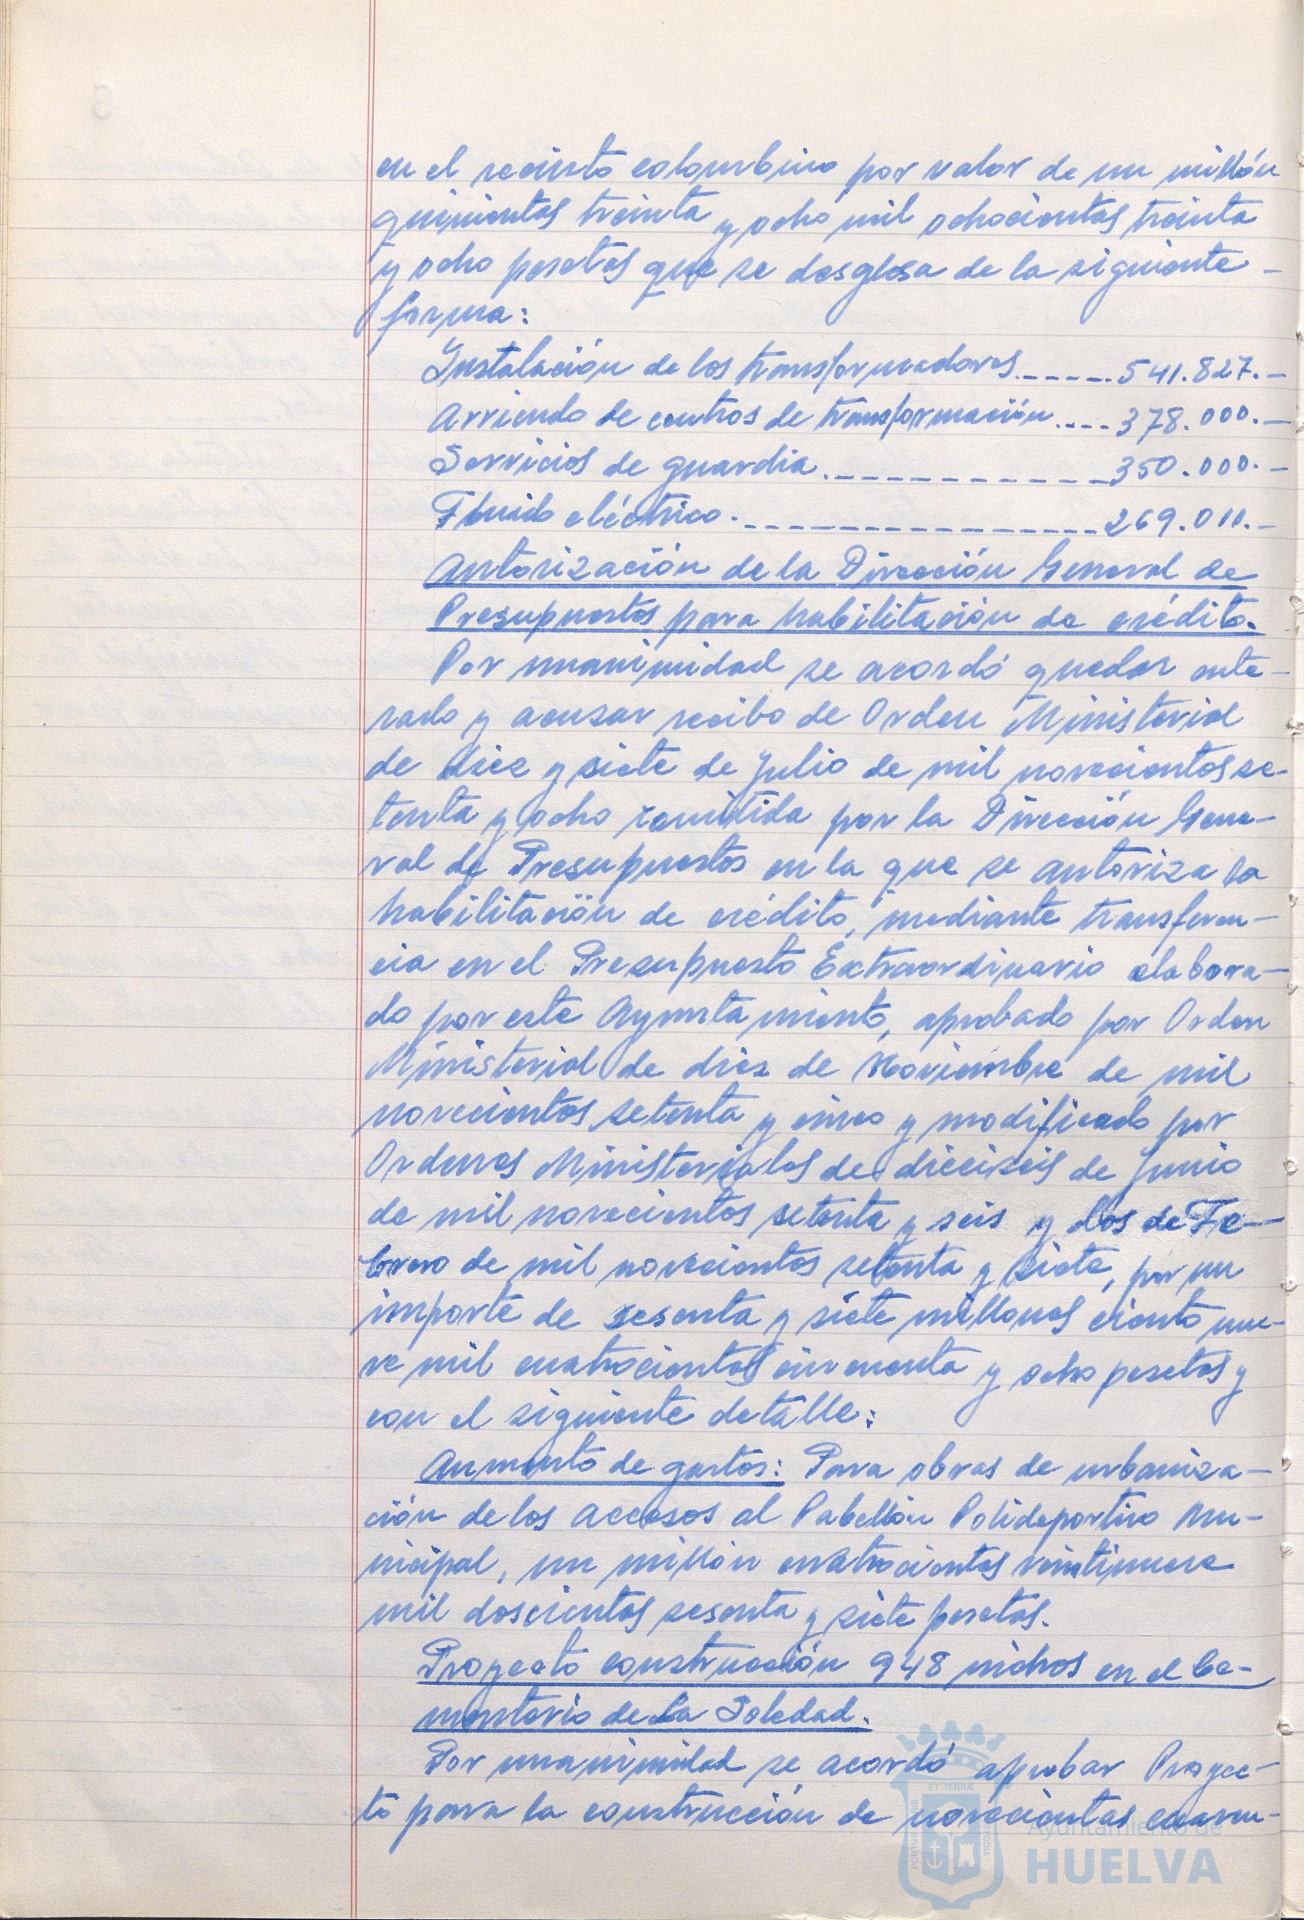 en el recinto colombino por valor de un millón
quinientas treinta y ocho mil ochocientas treinta
y ocho pesetas que se desglosa de la siguiente -
forma:
Instalación de los transformadores------541.827.-
Arriendo de centros de transformación.----378.000.-
Servicios de guardia.-------------350.000.-
Fluido eléctrico.-----------------269.011.-
Autorización de la Dirección General de
Presupuestos para habilitación de crédito.
Por unanimidad se acordó quedar ente-
rado y acusar recibo de Orden Ministerial
de diez y siete de Julio de mil novecientos se-
tenta y ocho remitida por la Dirección Gene-
ral de Presupuestos en la que se autoriza la
habilitación de crédito, mediante transferen-
cia en el Presupuesto Extraordinario elabora-
do por este Ayuntamiento, aprobado por Orden
Ministerial de diez de Noviembre de mil
novecientos setenta y cinco y modificado por
Ordenes Ministeriales de dieciseis de Junio
de mil novecientos setenta y seis y dos de Fe-
brero de mil novecientos setenta y siete, por un
importe de sesenta y siete millones ciento nue-
ve mil cuatrocientas cincuenta y ocho pesetas y
con el siguiente detalle:
Aumento de gastos: Para obras de urbaniza-
ción de los accesos al Pabellón Polideportivo Mu-
nicipal, un millón cuatrocientas veintinueve
mil doscientas sesenta y siete pesetas.
Proyecto construcción 948 nichos en el Ce-
menterio de La Soledad.
Por unanimidad se acordó aprobar Proyec-
to para la construcción de novecientos cuaren-
ET TERRAE
PORTUS MARIS
CUSTODIA
Ayuntamiento de
HUELVA